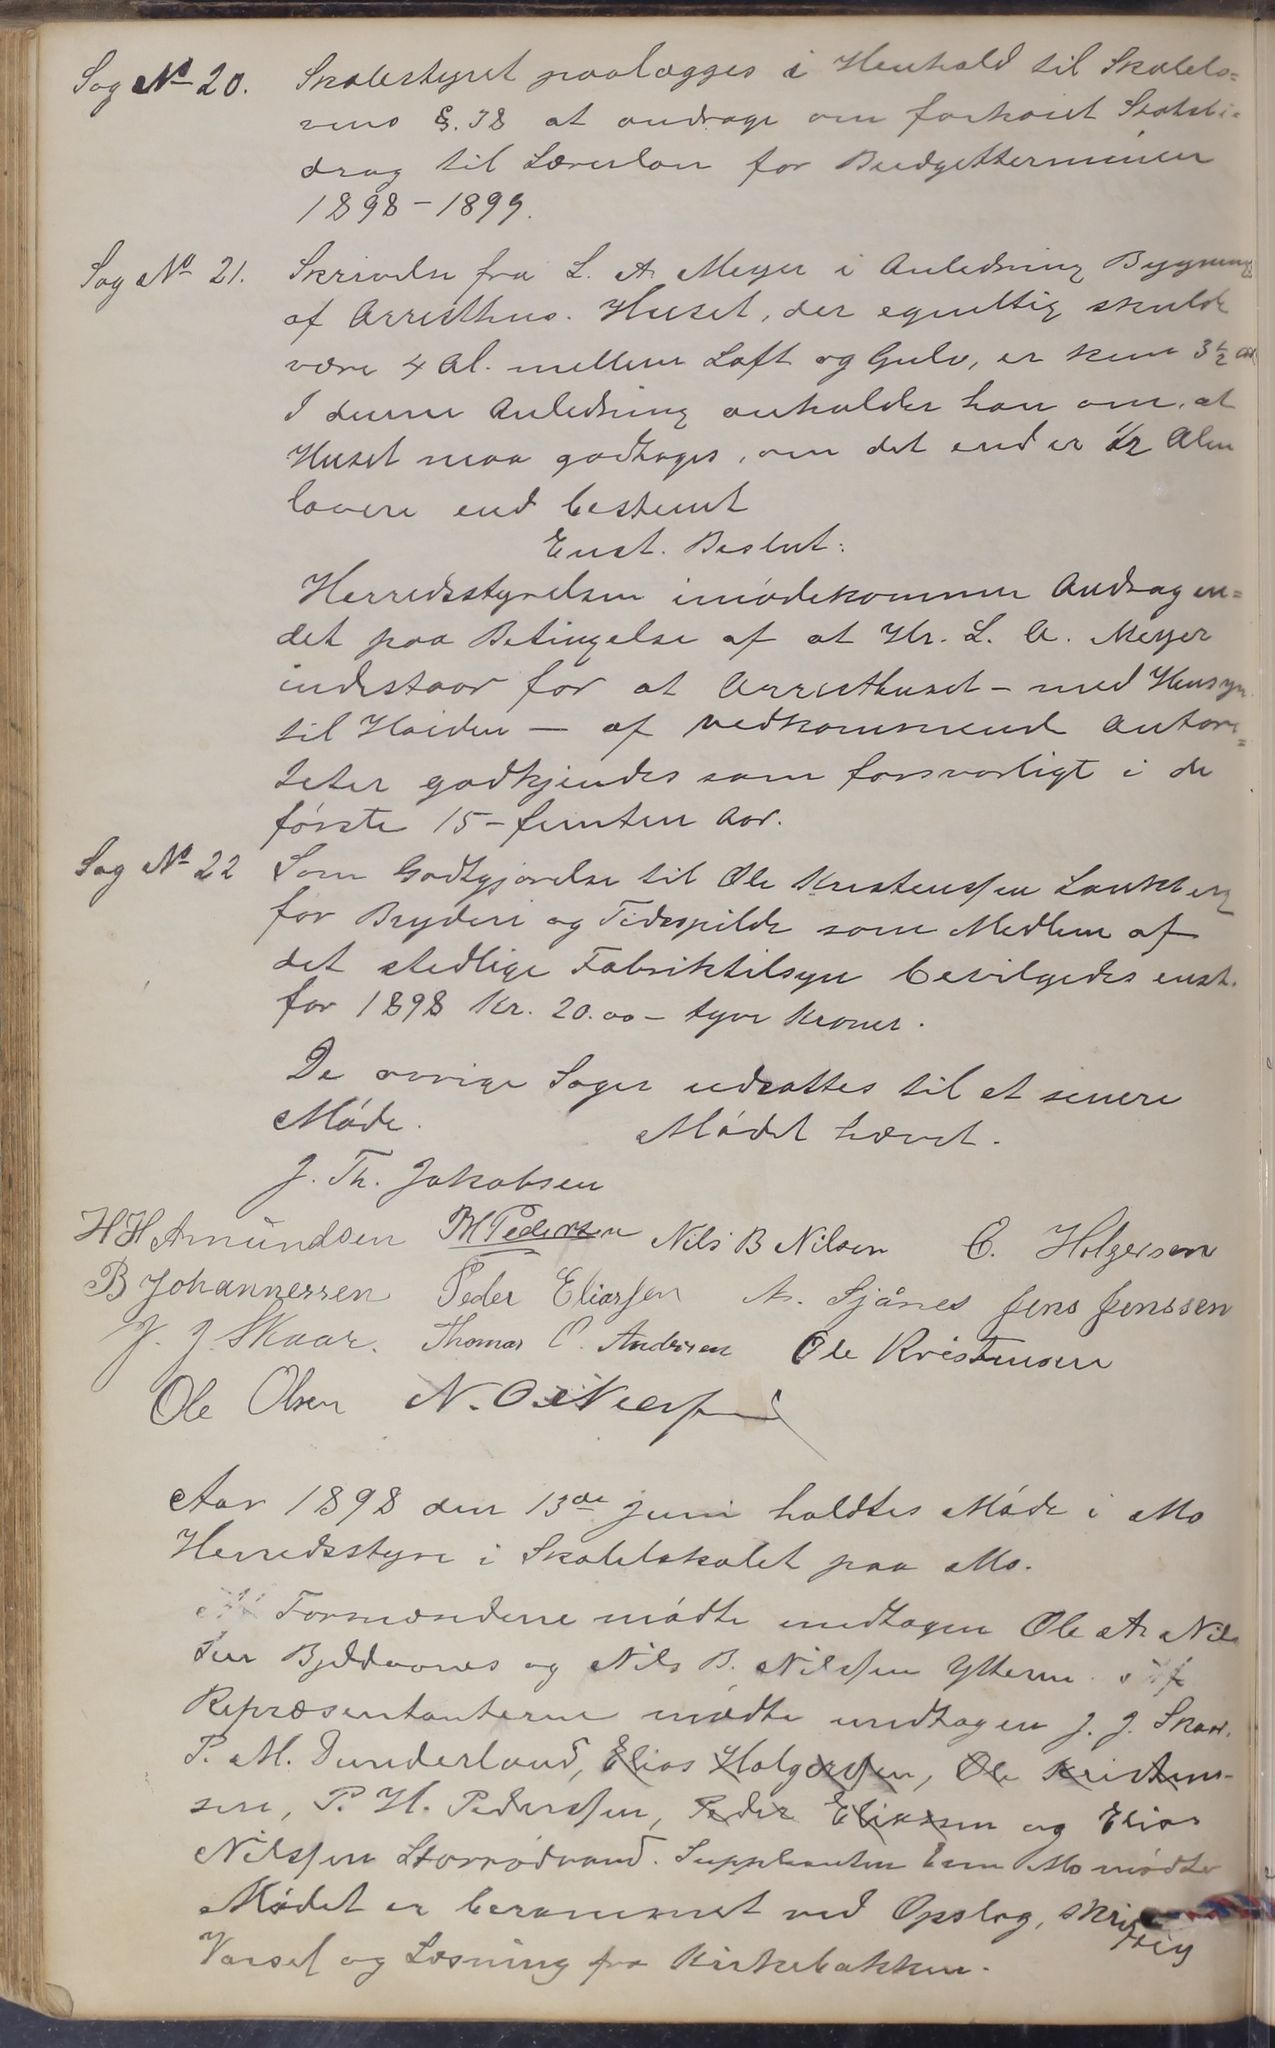 Sag No 20. Skolestyret paalægges i Henhold til Skolelo=
vens §. 38 at andrage om forhøiet Statsbi=
drag til Lærerløn for Budgetterminen
1898-1899.
Sag No 21. Skrivelse fra L. A. Meyer i Anledning Bygning
af Arresthus. Huset, der egentlig skulde
være 4 Al. mellem Loft og Gulv, er kun 3 1/2 Al.
I denne Anledning anholder han om, at
Huset maa godtages, om det end er 1/2 Alen
lavere end bestemt
Enst. Beslut:
Herredsstyrelsen imødekommer Andragen=
det paa Betingelse af at Hr. L. A. Meyer
indestaar for at Arresthuset - med Hensyn
til Høiden - af vedkommende Autori=
teter godkjendes som forsvarligt i de
første 15 - femten Aar.
Sag No 22 Som Godtgjørelse til Ole Kristenssen Lankberg
for Bryderi og Tidsspilde som Medlem af
det stedlige Fabriktilsyn bevilgedes enst.
for 1898 Kr. 20.00 - tyve Kroner.
De øvrige Sager udsattes til et senere
Møde. Mødet hævet.
J. Th. Jakobsen
H H Amundsen PH Pedersen Nils B Nilsen E. Holgersen
B Johannessen Peder Eliassen A. Sjånes Jens Jenssen
J. J. Skaar. Thomas O. Andersen Ole Kristensen
Ole Olsen N.
Aar 1898 den 13de Juni holdtes Møde i Mo
Herredsstyre i Skolelokalet paa Mo.
Formændene mødte undtagen Ole A. Nils
sen Bjeldaanes og Nils B. Nilssen Ytteren. Af
Repræsentanterne mødte undtagen J. J. Skaar.
P. M. Dunderland, Elias Holgerssen, Ole Kristens-
sen, P. H. Pederssen, Peder Eliassen og Elias
Nilssen Storrødvand. Suppleanten Enn Mo mødte
Mødet er berammet ved Opslag, skriftlig
Varsel og Læsning fra Kirkebakken.